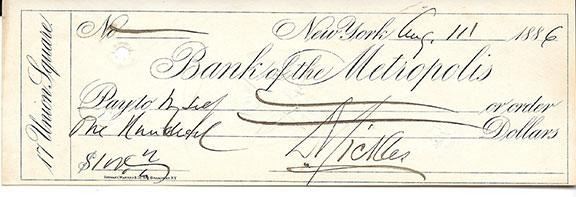 17 Union Square.
No. New York Aug. 111 1886
Bank of the Metropolis
Pay to Myself or order
One Hundred Dollars
$100